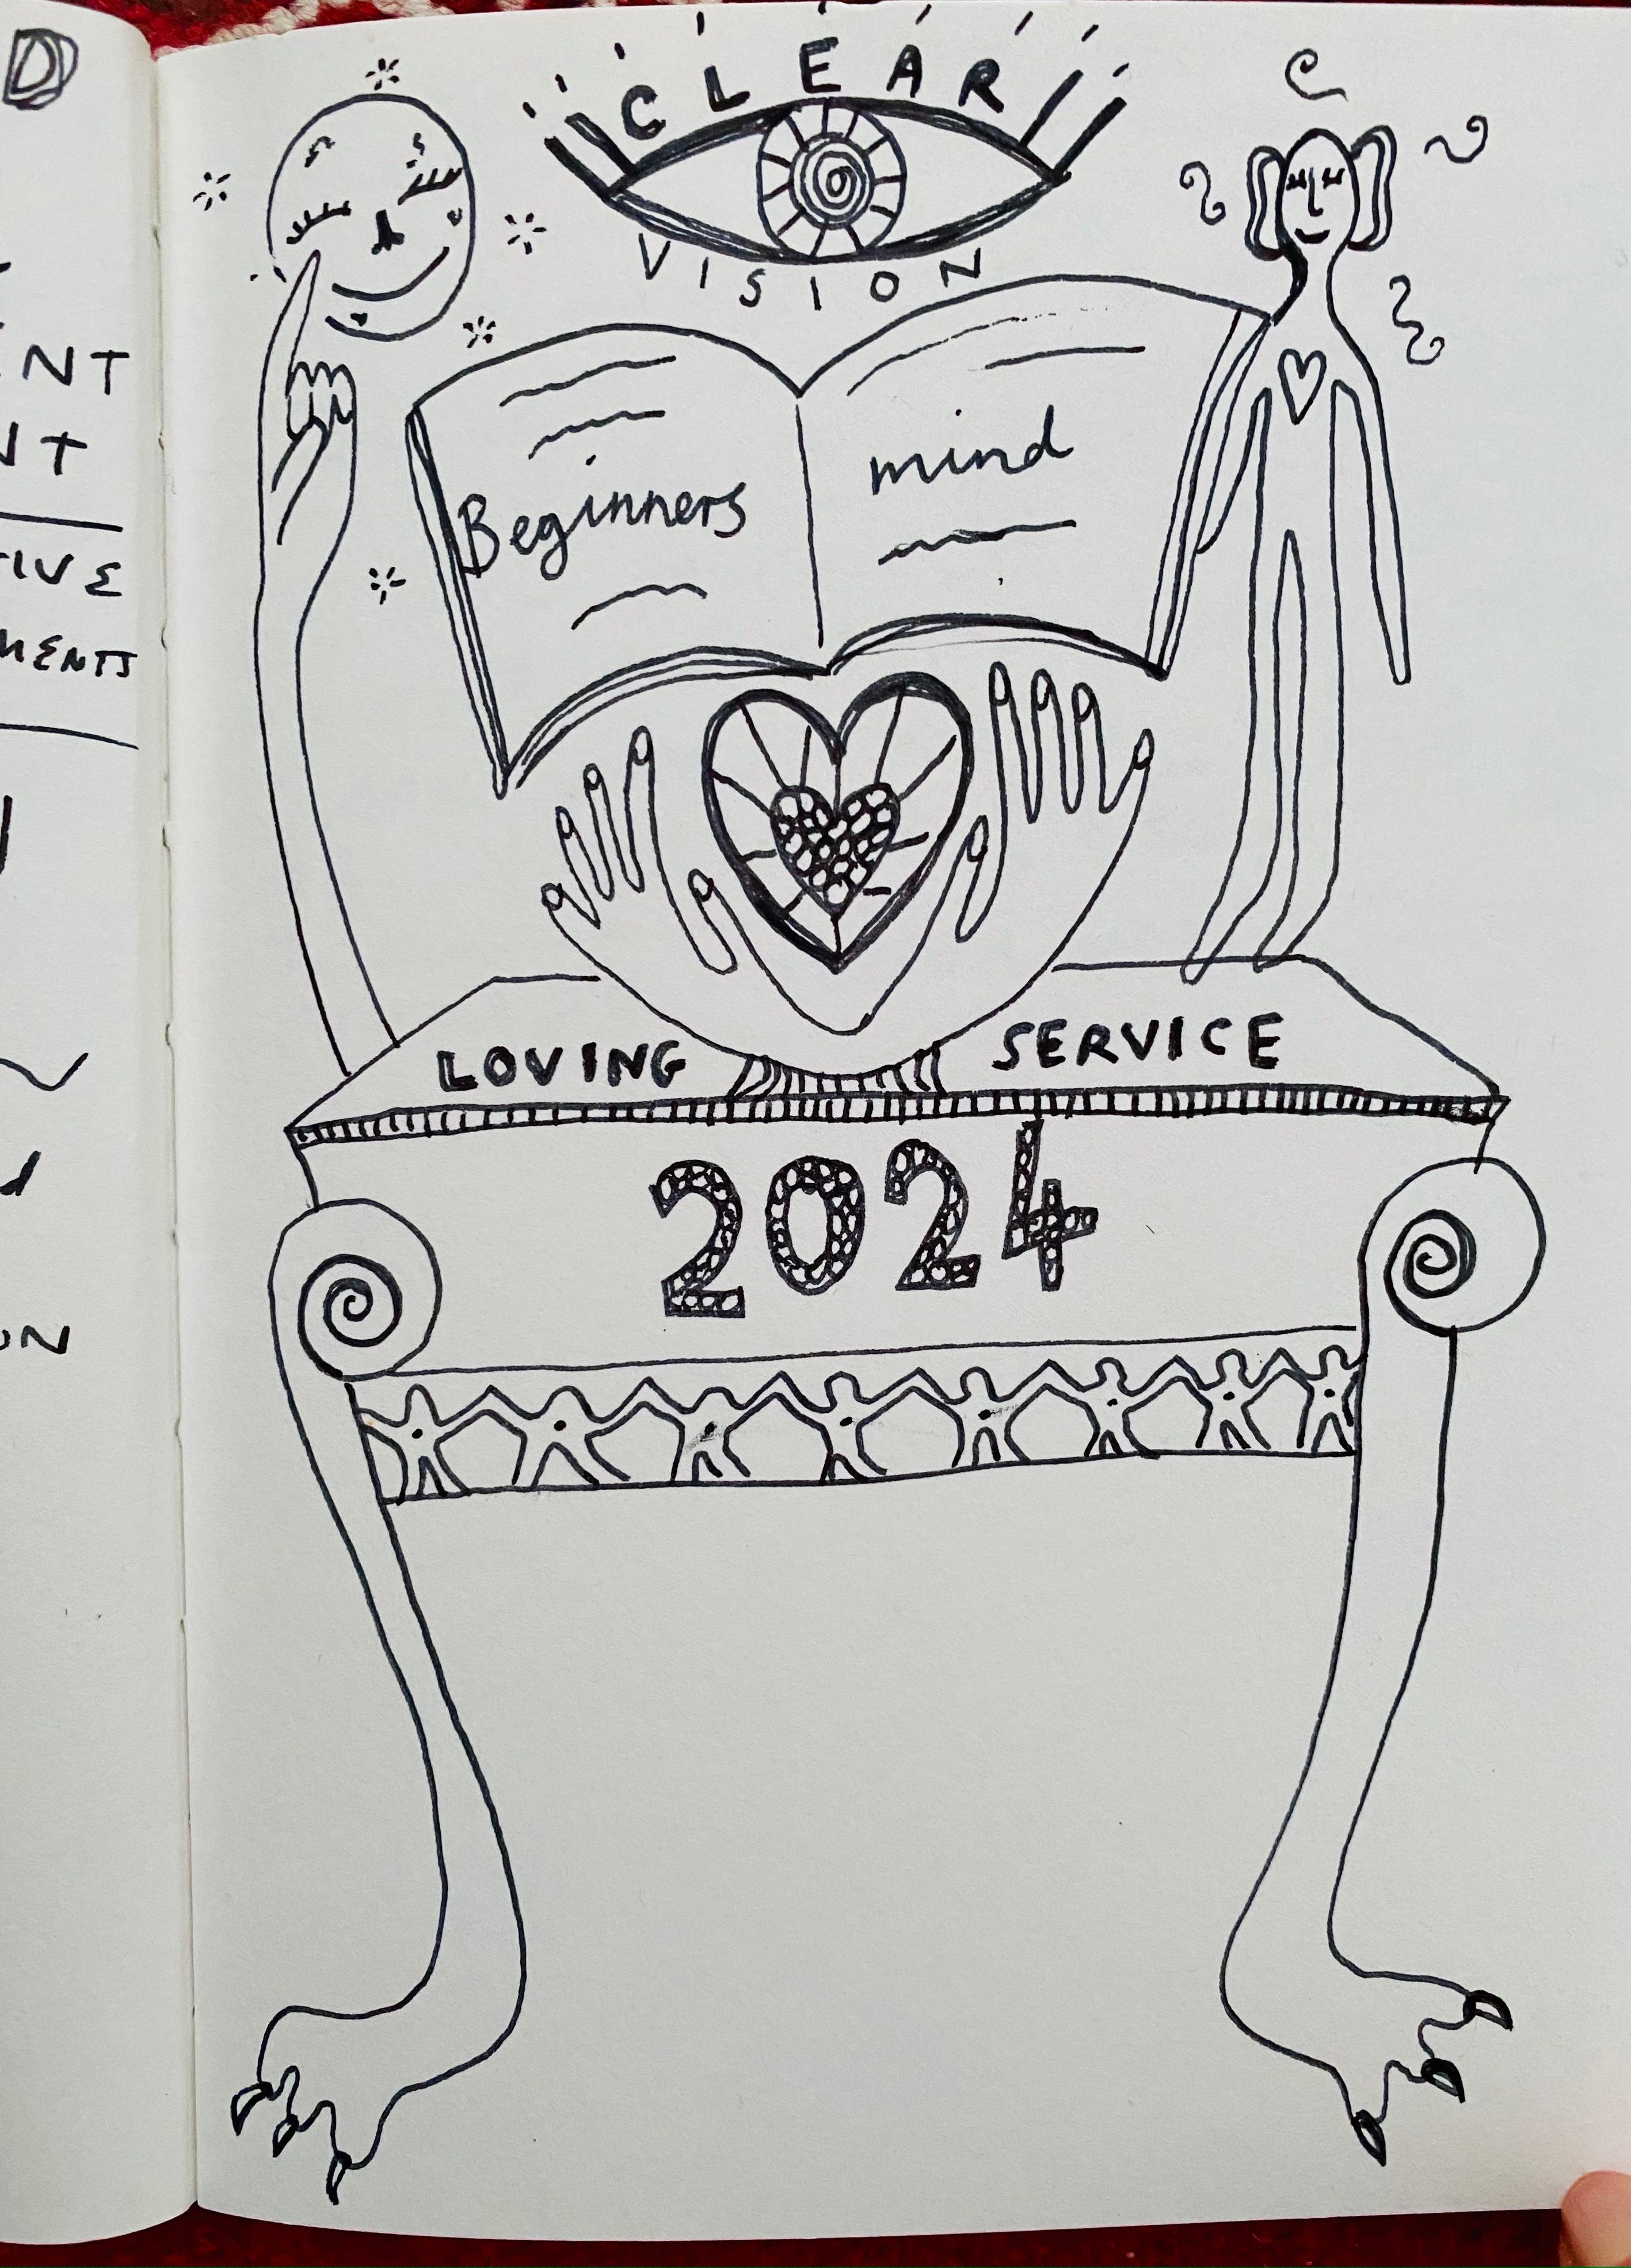 D
CLEAR
VISION
Beginners mind
NT
NT
IVE
MENTS
LOVING SERVICE
2024
ON